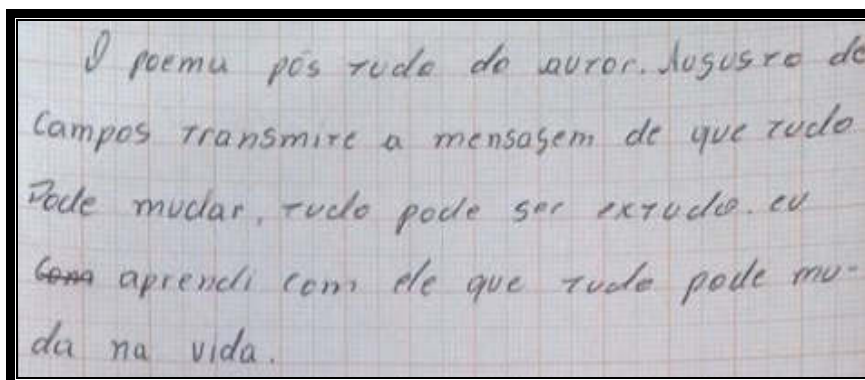 O poema pós tudo do autor. Augusto de
Campos transmite a mensagem de que tudo
Pode mudar, tudo pode ser extudo. eu
Com aprendi com ele que tudo pode mu-
da na vida.